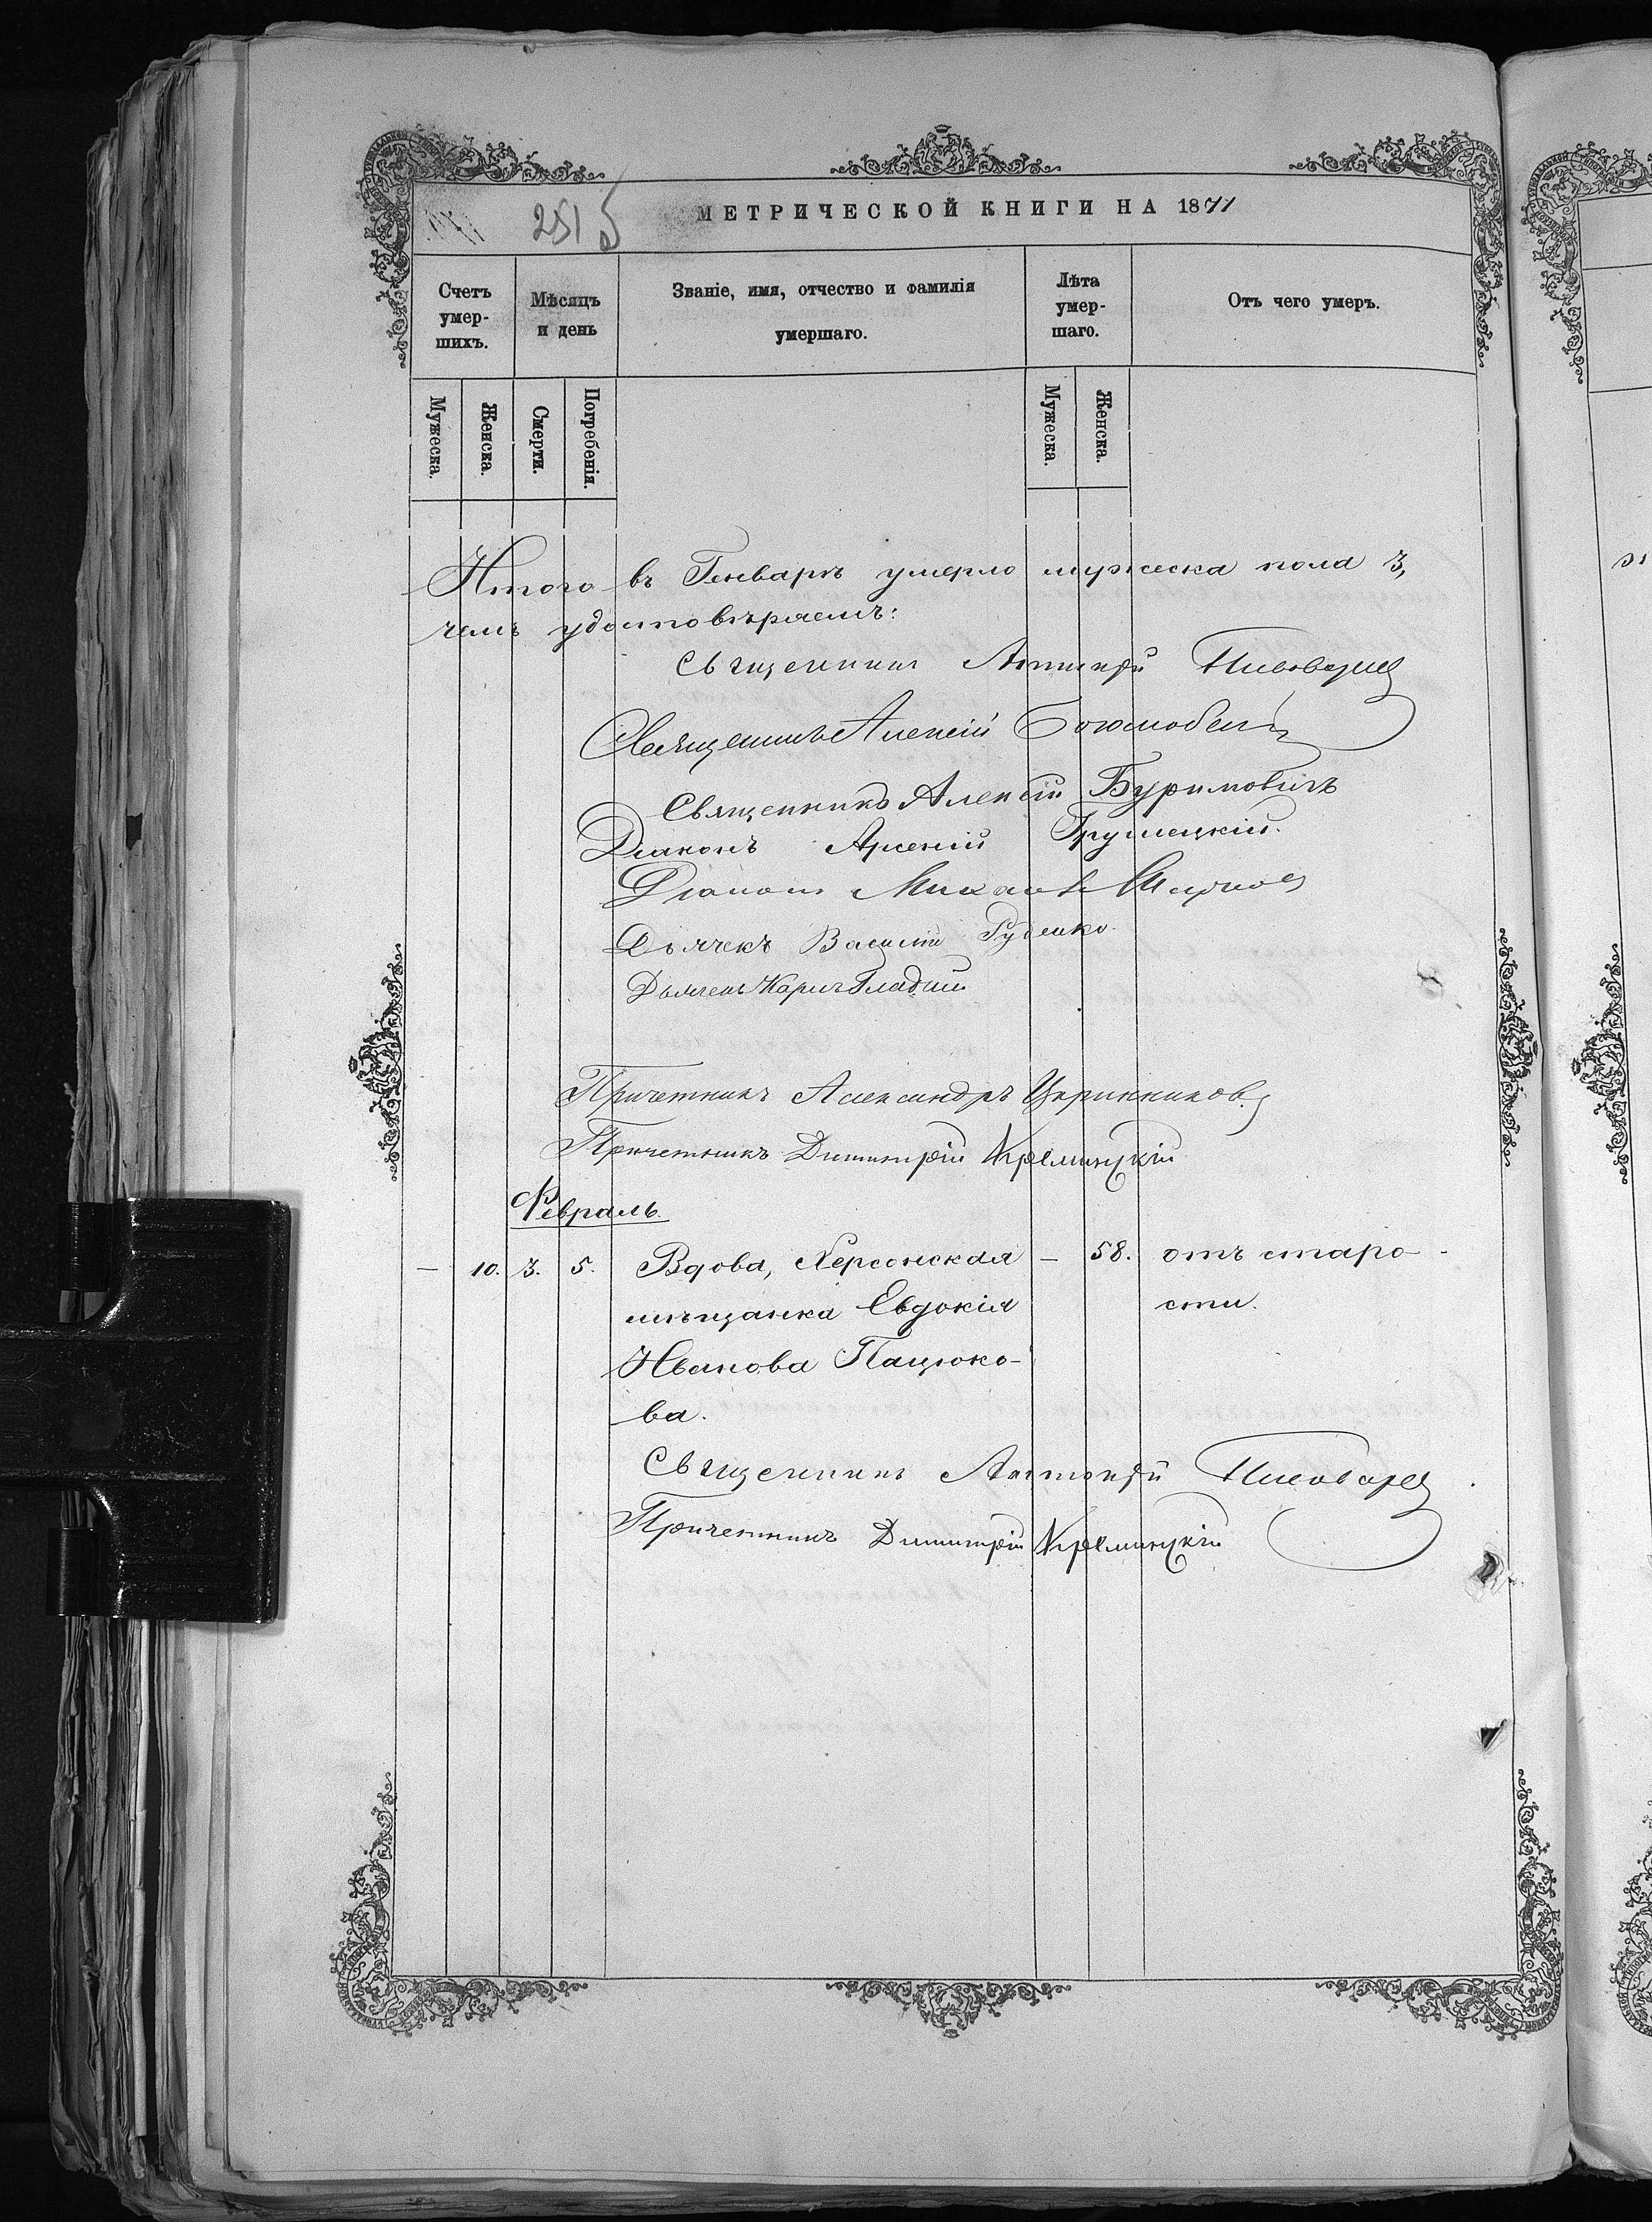 251
МЕТРИЧЕСКОЙ КНИГИ НА 1871
Счетъ умер-шихъ.
Мѣсяцъ и день
Званіе, имя, отчество и фамилія умершаго.
Лѣта умер-шаго.
Отъ чего умеръ.
Мужеска.
Женска.
Смерти.
Погребенія.
Мужеска.
Женска.
Итого въ Генварѣ умерло мужеска пола 3,
чемъ удостовѣряемъ:
Священникъ Антоній
Священникъ Алексій
Священникъ Алексій Буримовичъ
Діаконъ Арсеній Грушецкій.
Діаконъ Михаилъ
Дьячекъ Василій Руденко.
Дьячекъ Карпъ Гладкій
Причетникъ Александръ
Причетникъ Димитрій Креминскій
Февраль.
— 10. 3. 5. Вдова, Херсонская — 58. отъ старо-
мѣщанка Евдокія сти.
Иванова Пацюко-
ва.
Священникъ Антоній
Причетникъ Димитрій Креминскій